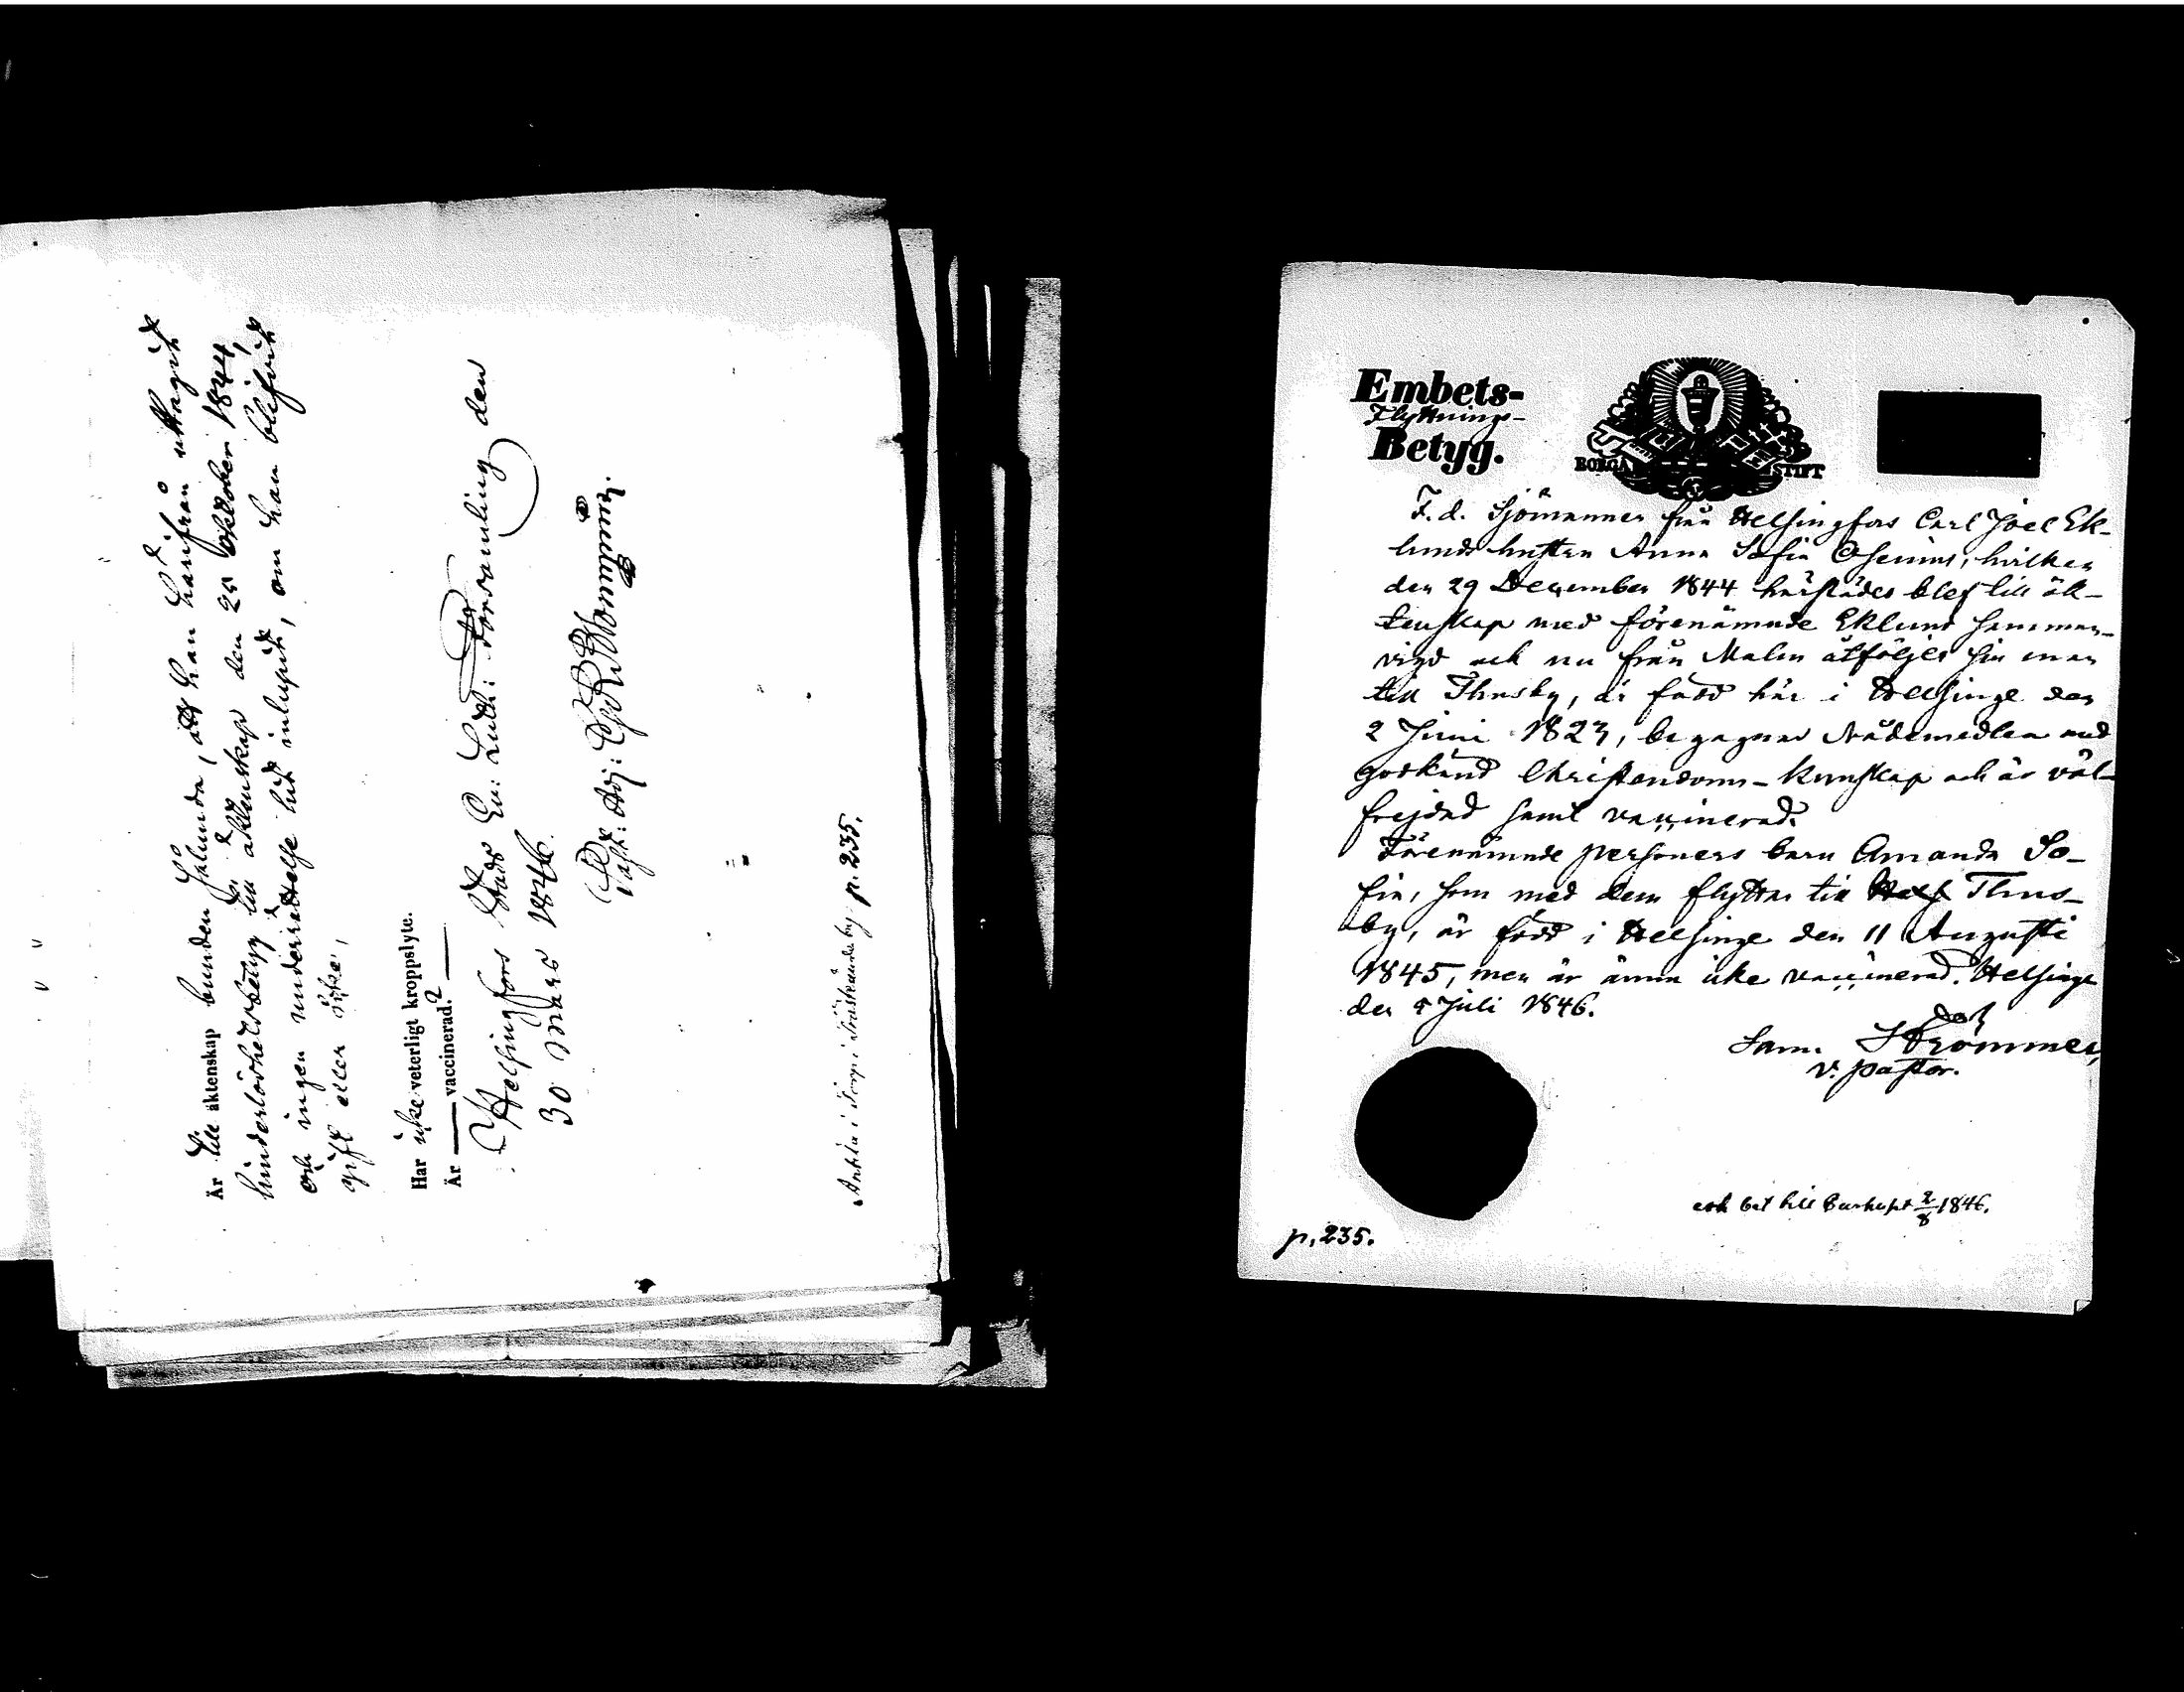 Är till äktenskap bunden sålunda, att han härifrån uttagit
hinderlöshetsbetyg till äktenskap den 25 Oktober 1844,
och ingen underrättelse hit inlupit, om han blifvit
gift eller icke,
Har icke veterligt kroppslyte.
Är — vaccinerad.? —
Helsingfors Stads Ev: Luth: Församling den
30 Mars 1846.
Past: Adj:
i Träskända by p. 235.
Embets-
Flyttnings-
Betyg.
BORGÅ STIFT
F. d. Sjömannen från Helsingfors Carl Joel Ek-
lunds hustru Anna Sofia Osenius, hvilken
den 29 December 1844 härstädes blef till äk-
tenskap med förenämnde Eklund samman-
vigd och nu från Malm åtföljer sin man
till Thusby, är född här i Helsinge den
2 Junii 1823, begagnar Nådemedlen med
godkänd Christendoms-kunskap och är väl-
frejdad samt vaccinerad.
Förenämnde personers barn Amanda So-
fia, som med dem flyttar till Hels Thus-
by, är född i Helsinge den 11 Augusti
1845, men är ännu icke vaccinerad. Helsinge
den 5 Juli 1846.
Sam. Strömmer,
v. pastor.
bet till 2/8 1846.
p. 235.